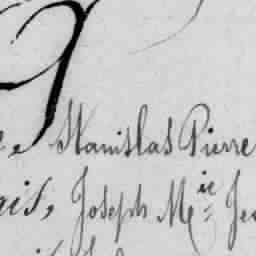 Stanislas Pierre
ais, Joseph M.ie Je